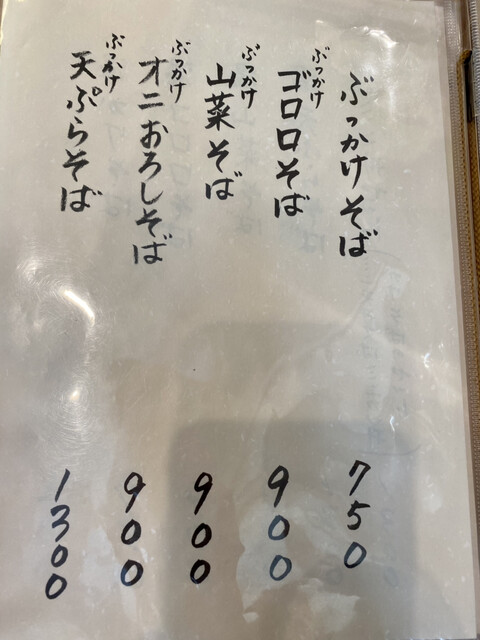 ぶっかけそば 750
ぶっかけ
ゴロロそば 900
ぶっかけ
山菜そば 900
ぶっかけ
オニおろしそば 900
ぶっかけ
天ぷらそば 1300